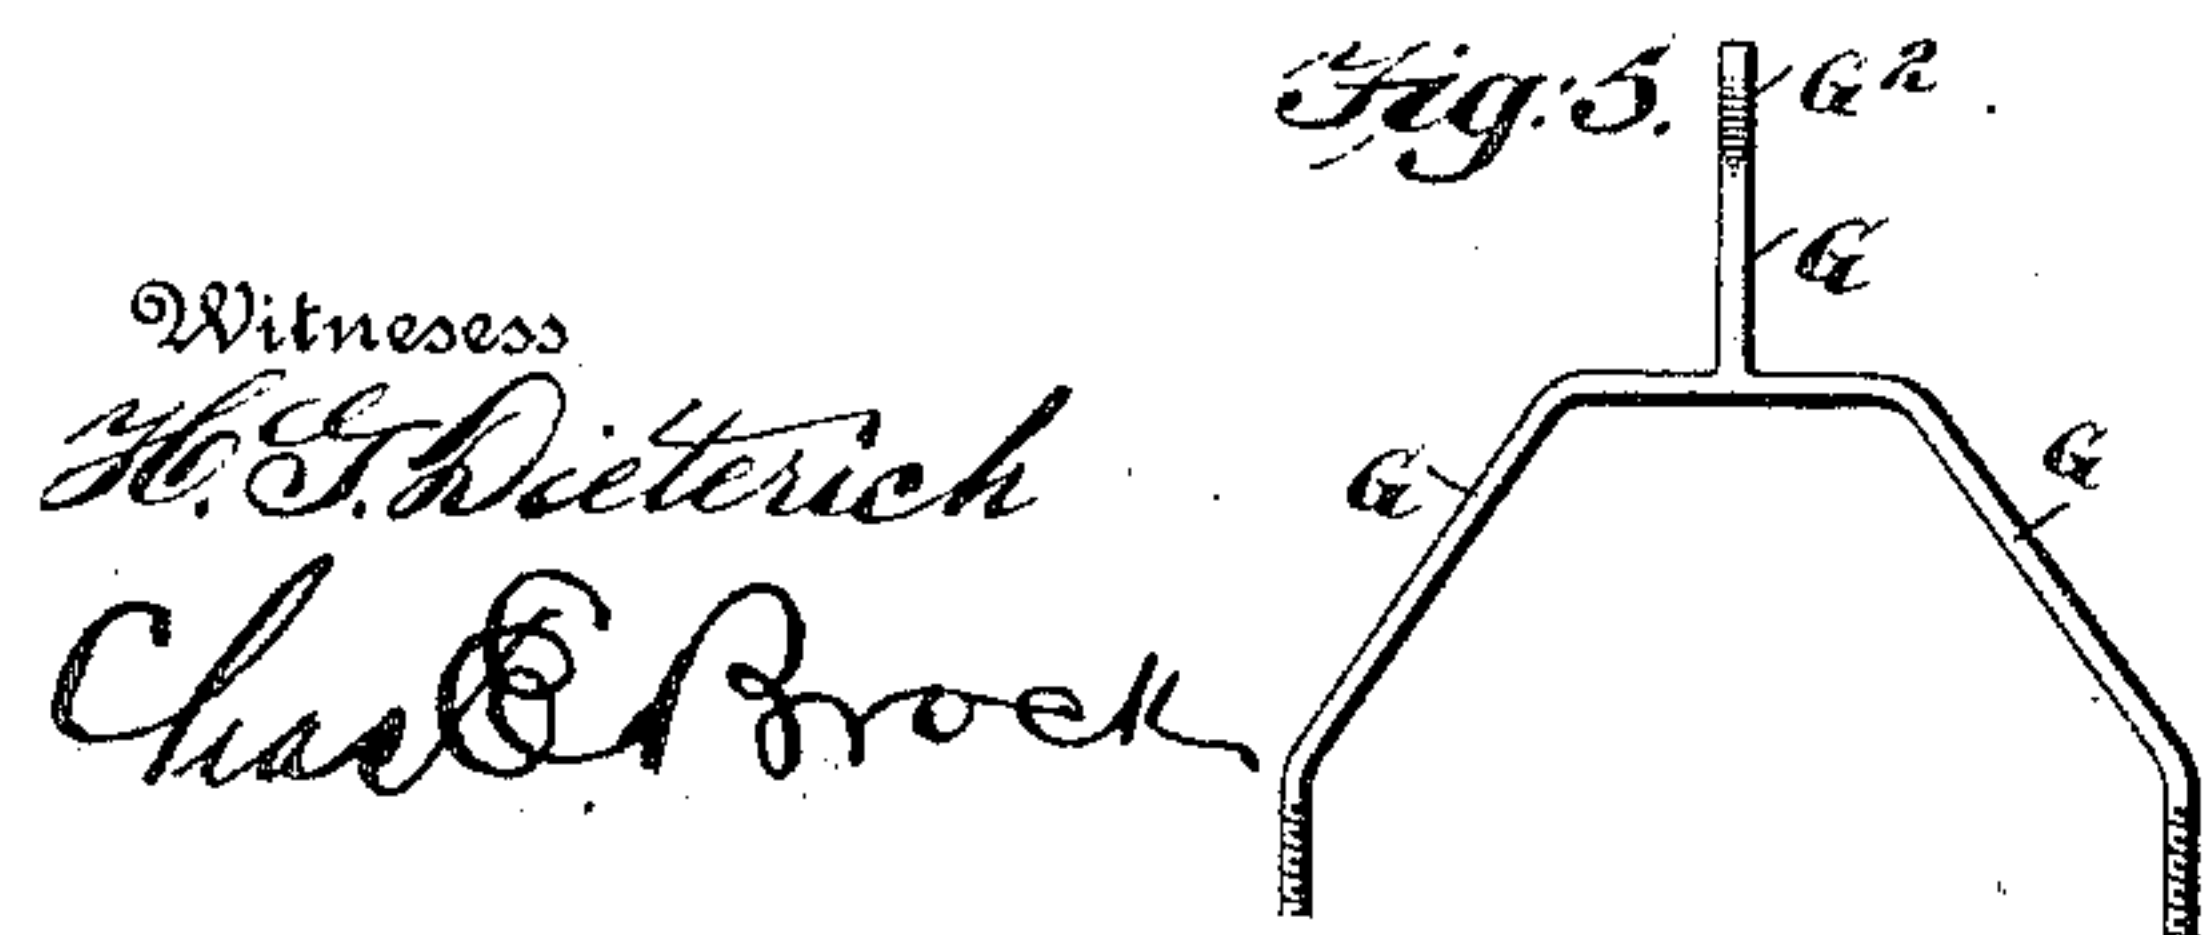 Fig. 5.
G2
G
Witnesess
H. G. Dieterich
G
G
Chas E Brock